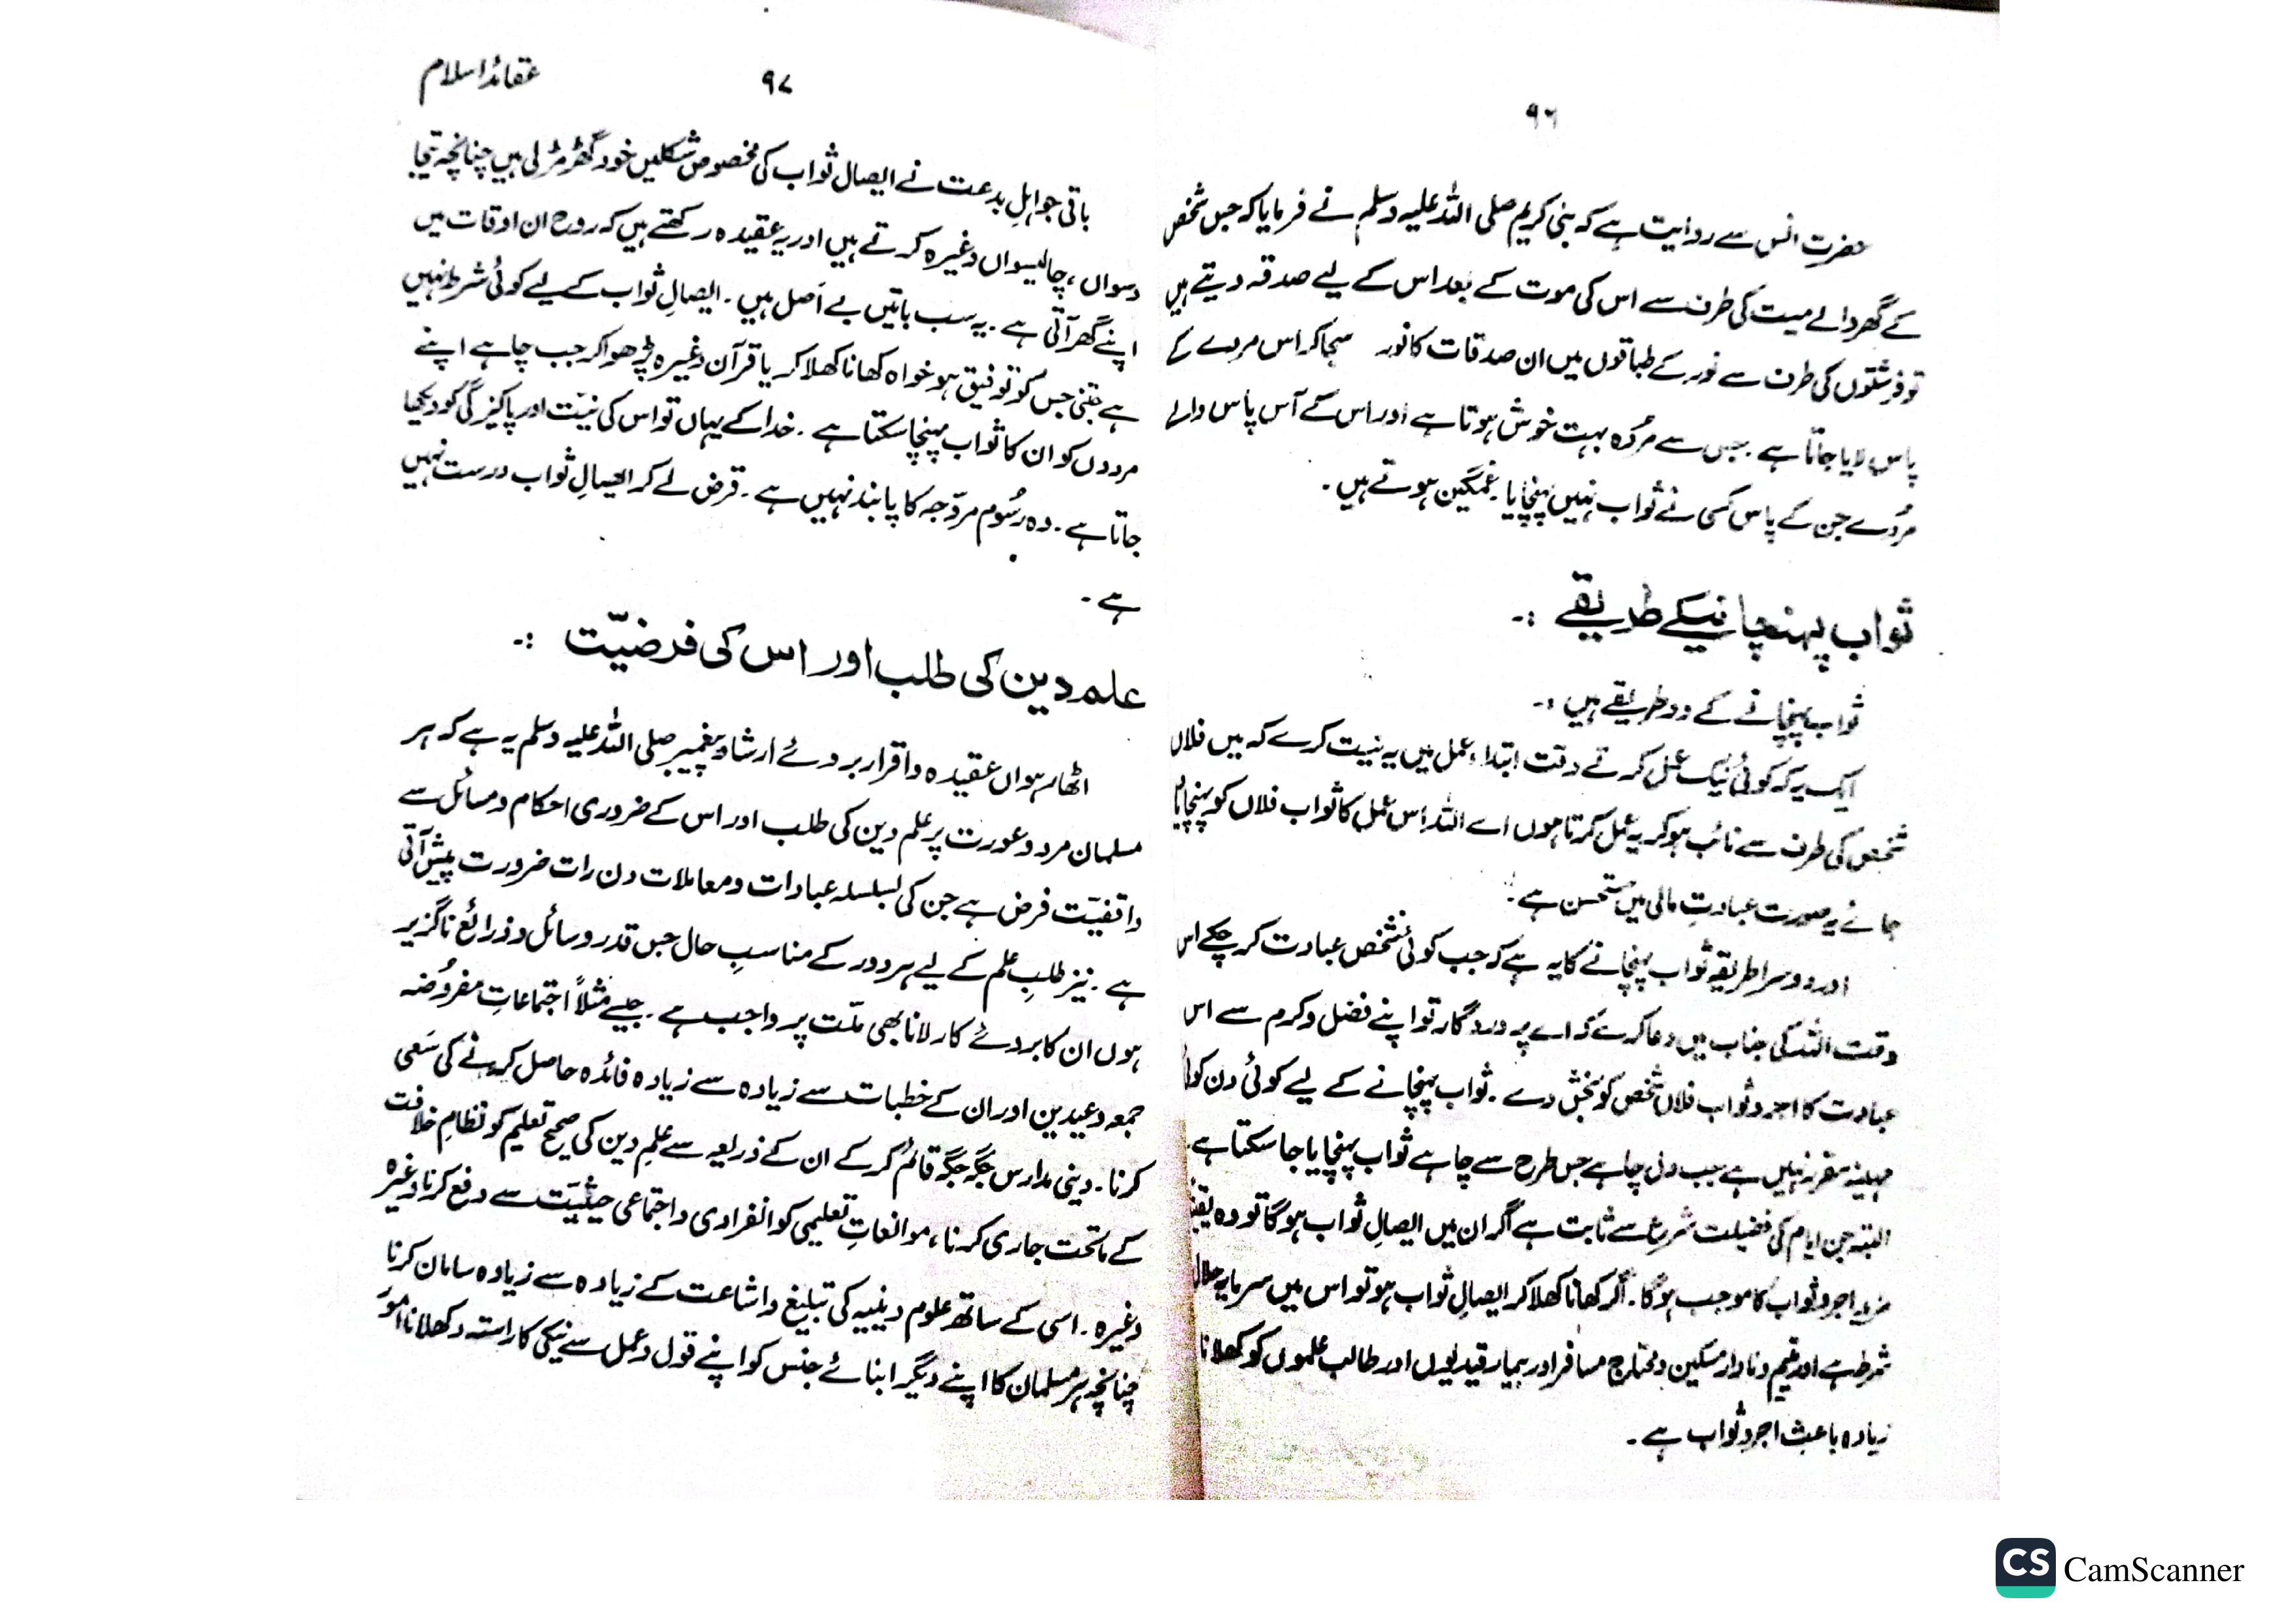 ۹۶
حضرت انس سے روایت ہے کہ نبی کریم صلی اللہ علیہ وسلم نے فرمایا کہ جس شخص
کے گھر والے میت کی طرف سے اس کی موت کے بعد اس کے لیے صدقہ دیتے ہیں
تو فرشتوں کی طرف سے نور کے طباقوں میں ان صدقات کا نور سجا کر اس مردے کے
پاس لایا جاتا ہے۔ جس سے مُردہ بہت خوش ہوتا ہے اور اس کے آس پاس والے
مُردے جن کے پاس کسی نے ثواب نہیں پہنچایا غمگین ہوتے ہیں۔
ثواب پہنچانیکے طریقے :۔
ثواب پہنچانے کے دو طریقے ہیں :۔
ایک یہ کہ کوئی نیک عمل کرتے وقت ابتداء عمل میں یہ نیت کرے کہ میں فلاں
شخص کی طرف سے نائب ہو کر یہ عمل کرتا ہوں اے اللہ اس عمل کا ثواب فلاں کو پہنچایا
جائے یہ صورت عبادتِ مالی میں مستحسن ہے۔
اور دوسرا طریقہ ثواب پہنچانے کا یہ ہے کہ جب کوئی شخص عبادت کر چکے اس
وقت اللہ کی جناب میں دعا کرے کہ اے پروردگار تو اپنے فضل و کرم سے اس
عبادت کا اجر و ثواب فلاں شخص کو بخش دے۔ ثواب پہنچانے کے لیے کوئی دن کوئی
مہینہ مقرر نہیں ہے جب دل چاہے جس طرح سے چاہے ثواب پہنچایا جا سکتا ہے۔
البتہ جن ایام کی فضیلت شرع سے ثابت ہے اگر ان میں ایصالِ ثواب ہوگا تو وہ
مزید اجر و ثواب کا موجب ہوگا۔ اگر کھانا کھلا کر ایصالِ ثواب ہو تو اس میں سرمایہ حلال
شرط ہے اور یتیم و نادار مسکین و محتاج مسافر اور بیمار قیدیوں اور طالب علموں کو کھلانا
زیادہ باعثِ اجر و ثواب ہے۔
۹۷
عقائد اسلام
باقی جو اہلِ بدعت نے ایصال ثواب کی مخصوص شکلیں خود گھڑ مڑ لی ہیں چنانچہ تیجا
دسواں، چالیسواں وغیرہ کرتے ہیں اور یہ عقیدہ رکھتے ہیں کہ روح ان اوقات میں
اپنے گھر آتی ہے۔ یہ سب باتیں بے اَصل ہیں۔ ایصالِ ثواب کے لیے کوئی شرط نہیں
ہے جتنی جس کو توفیق ہو خواہ کھانا کھلا کر یا قرآن وغیرہ پڑھوا کر جب چاہے اپنے
مردوں کو ان کا ثواب پہنچا سکتا ہے۔ خدا کے یہاں تو اس کی نیّت اور پاکیزگی کو دیکھا
جاتا ہے۔ وہ رسُوم مروّجہ کا پابند نہیں ہے۔ قرض لے کر ایصالِ ثواب درست نہیں
ہے۔
علم دین کی طلب اور اس کی فرضیّت :۔
اٹھارہواں عقیدہ و اقرار بروئے ارشاد پیغمبر صلی اللہ علیہ وسلم یہ ہے کہ ہر
مسلمان مرد و عورت پر علم دین کی طلب اور اس کے ضروری احکام و مسائل سے
واقفیّت فرض ہے جن کی بسلسلہ عبادات و معاملات دن رات ضرورت پیش آتی
ہے۔ نیز طلبِ علم کے لیے ہر دور کے مناسبِ حال جس قدر وسائل و ذرائع ناگزیر
ہوں ان کا بروئے کار لانا بھی ملّت پر واجب ہے۔ جیسے مثلاً اجتماعاتِ مفروُضہ
جمعہ و عیدین اور ان کے خطبات سے زیادہ سے زیادہ فائدہ حاصل کرنے کی سَعی
کرنا۔ دینی مدارس جگہ جگہ قائم کر کے ان کے ذریعہ سے علمِ دین کی صحیح تعلیم کو نظامِ خلافت
کے ماتحت جاری کرنا، موانعاتِ تعلیمی کو انفرادی و اجتماعی حیثیّت سے دفع کرنا وغیرہ
وغیرہ۔ اسی کے ساتھ علوم دینیہ کی تبلیغ و اشاعت کے زیادہ سے زیادہ سامان کرنا
چنانچہ ہر مسلمان کا اپنے دیگر ابنائے جنس کو اپنے قول و عمل سے نیکی کا راستہ دکھلانا امور
CS CamScanner